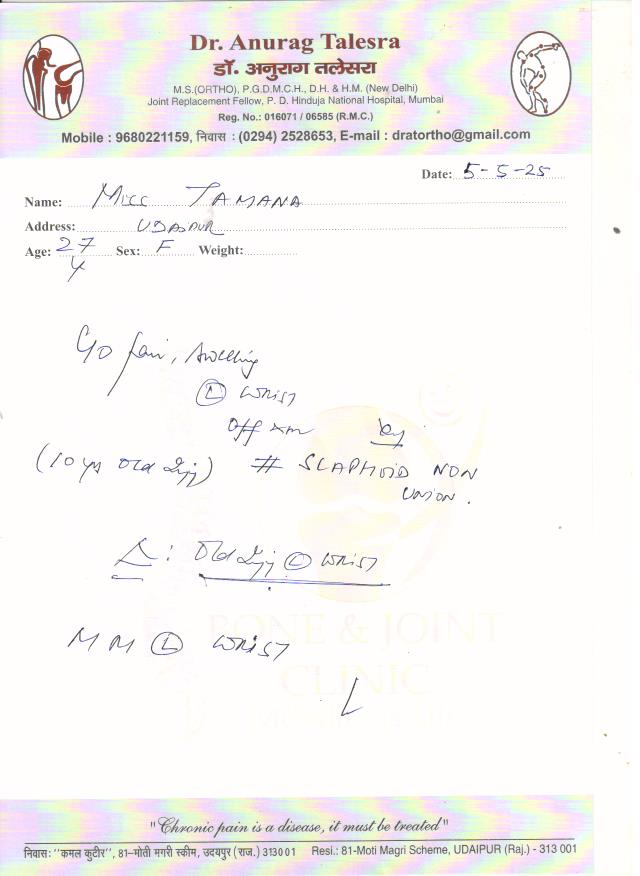 Dr. Anurag Talesra
डॉ. अनुराग तलेसरा
M.S.(ORTHO), P.G.D.M.C.H., D.H. & H.M. (New Delhi)
Joint Replacement Fellow, P. D. Hinduja National Hospital, Mumbai
Reg. No.: 016071 / 06585 (R.M.C.)
Mobile : 9680221159, निवास : (0294) 2528653, E-mail : dratortho@gmail.com
Date: 5-5-25
Name: Miss TAMANA
Address: UDAIPUR
Age: 27 Y Sex: F Weight:
Pain, Swelling
(L) WRIST
(10 yrs Old Inj) # SCAPHOID NON
UNION.
Δ: Old Inj (L) WRIST
M M (L) WRIST
BONE & JOINT
CLINIC
"Chronic pain is a disease, it must be treated"
निवास: "कमल कुटीर", 81-मोती मगरी स्कीम, उदयपुर (राज.) 313001 Resi.: 81-Moti Magri Scheme, UDAIPUR (Raj.) - 313 001